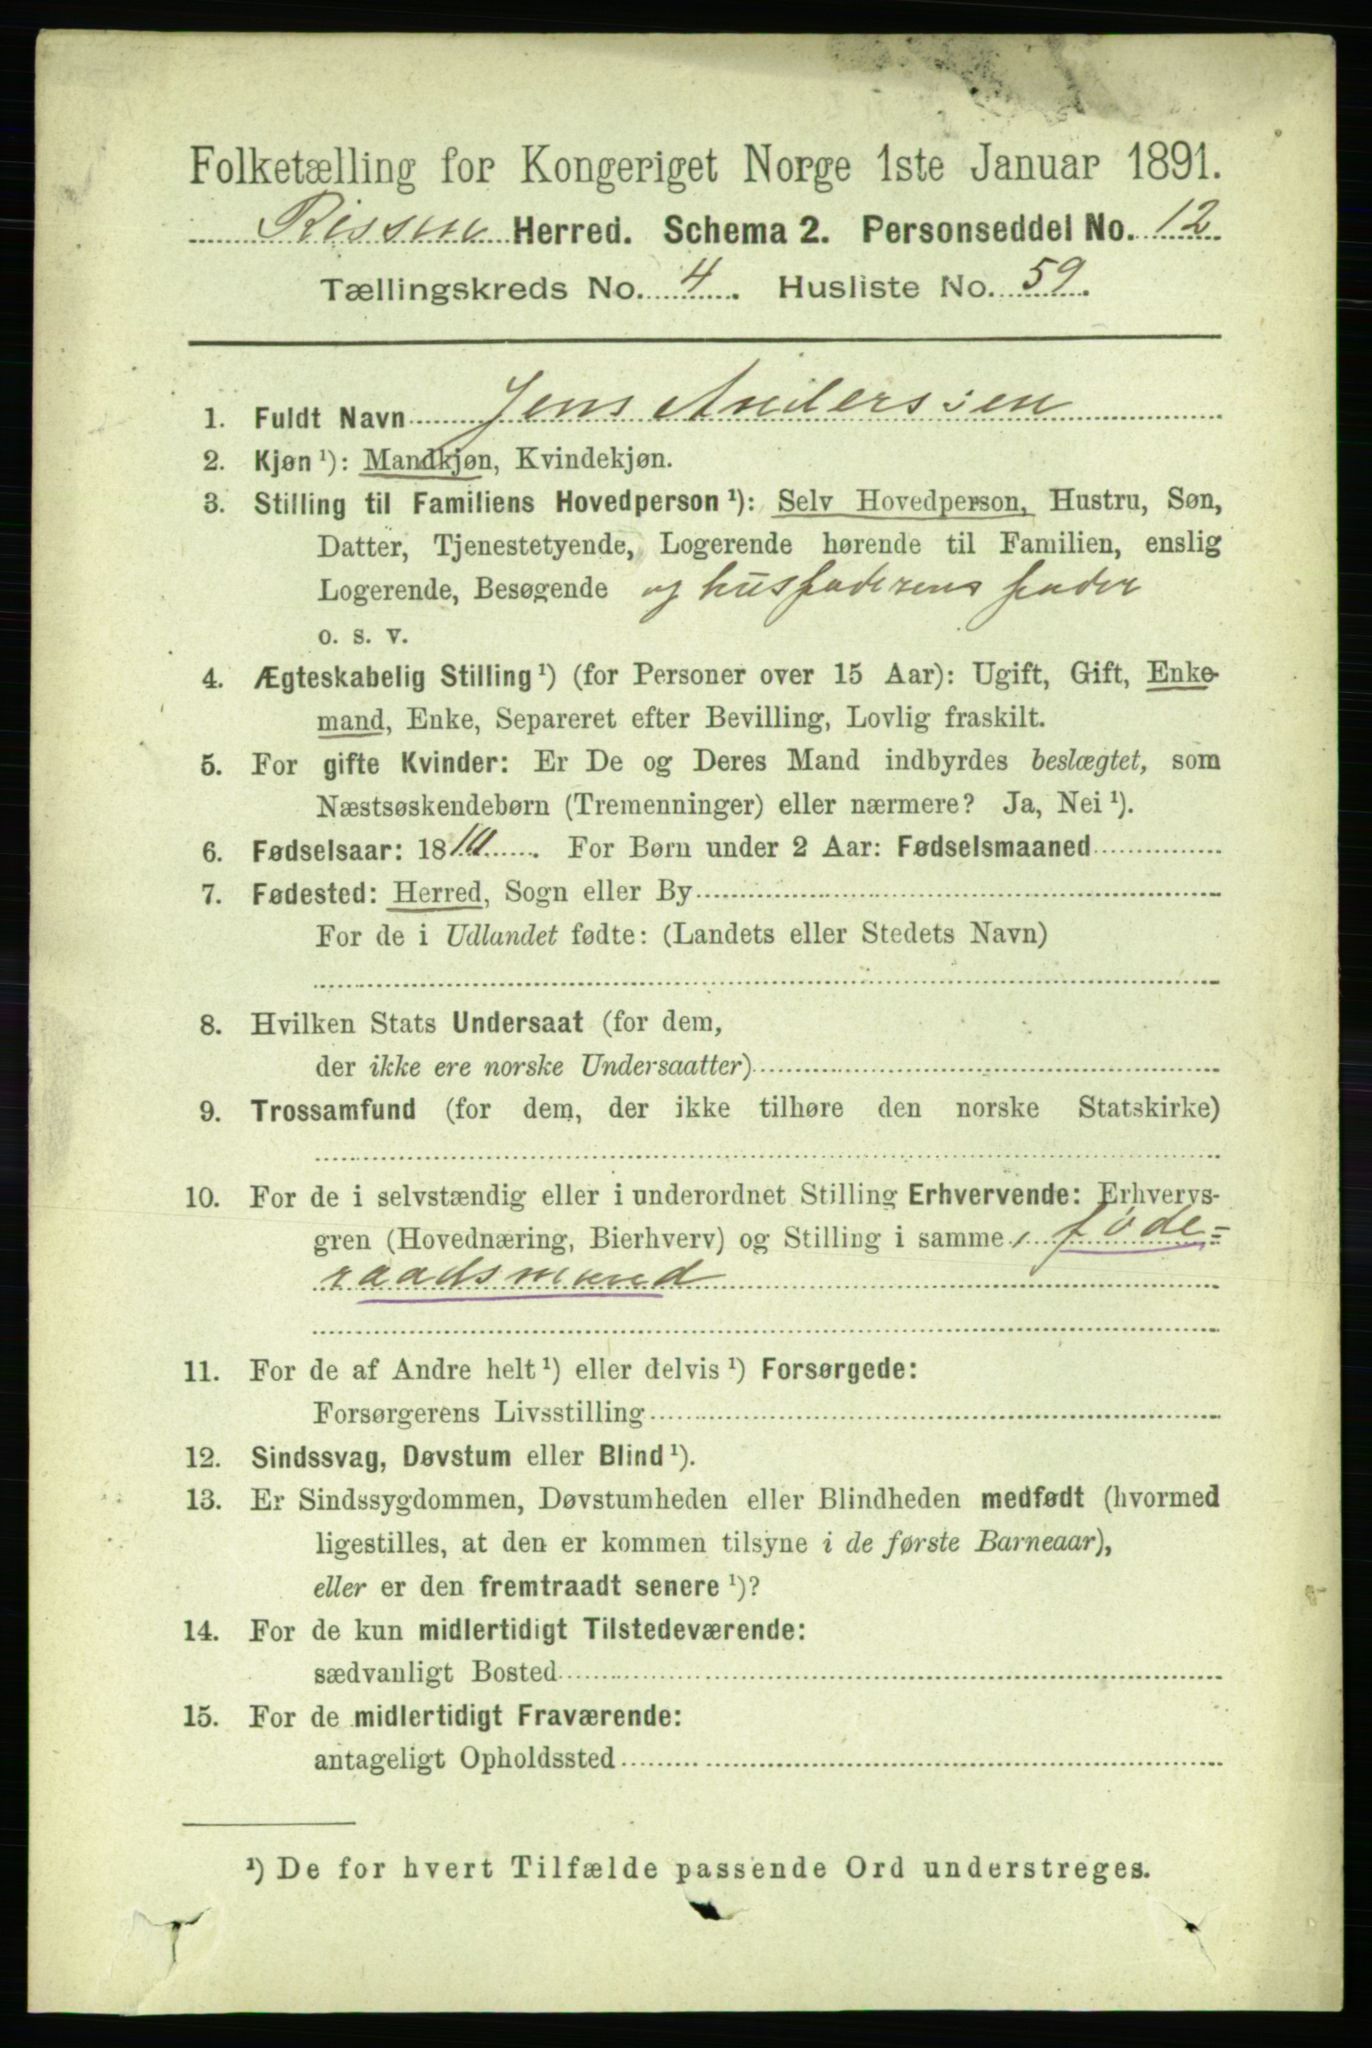 Folketælling for Kongeriget Norge 1ste Januar 1891.
Rissen Herred. Schema 2. Personseddel No. 12
Tællingskreds No. 4. Husliste No. 59.
1. Fuldt Navn Jens Anderssen
2. Kjøn ¹): Mandkjøn, Kvindekjøn.
3. Stilling til Familiens Hovedperson ¹): Selv Hovedperson, Hustru, Søn,
Datter, Tjenestetyende, Logerende hørende til Familien, enslig
Logerende, Besøgende og husfaderens fader
o. s. v.
4. Ægteskabelig Stilling ¹) (for Personer over 15 Aar): Ugift, Gift, Enke-
mand, Enke, Separeret efter Bevilling, Lovlig fraskilt.
5. For gifte Kvinder: Er De og Deres Mand indbyrdes beslægtet, som
Næstsøskendebørn (Tremenninger) eller nærmere? Ja, Nei ¹).
6. Fødselsaar: 18 . For Børn under 2 Aar: Fødselsmaaned
7. Fødested: Herred, Sogn eller By
For de i Udlandet fødte: (Landets eller Stedets Navn)
8. Hvilken Stats Undersaat (for dem,
der ikke ere norske Undersaatter)
9. Trossamfund (for dem, der ikke tilhøre den norske Statskirke)
10. For de i selvstændig eller i underordnet Stilling Erhvervende: Erhvervs-
gren (Hovednæring, Bierhverv) og Stilling i samme føde=
raadsmand
11. For de af Andre helt ¹) eller delvis ¹) Forsørgede:
Forsørgerens Livsstilling
12. Sindssvag, Døvstum eller Blind ¹).
13. Er Sindssygdommen, Døvstumheden eller Blindheden medfødt (hvormed
ligestilles, at den er kommen tilsyne i de første Barneaar),
eller er den fremtraadt senere ¹)?
14. For de kun midlertidigt Tilstedeværende:
sædvanligt Bosted
15. For de midlertidigt Fraværende:
antageligt Opholdssted
¹) De for hvert Tilfælde passende Ord understreges.